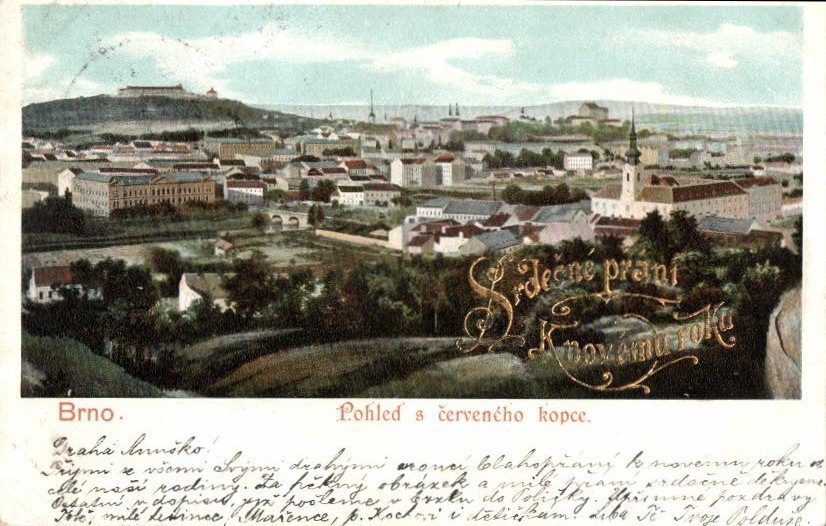 Srdečné přání
K novému roku
Brno. Pohled s červeného kopce.
Drahá Annuško!
Přijmi se všemi Svými drahými vroucí blahopřání k novému roku od
celé naší rodiny. Za pěkný obrázek a milé přání srdečně děkujeme.
Ostatní v dopisu, jejž pošleme v brzku do Poličky. Upřímné pozdravy
Tobě, milé tetince, Mařence, p. Kochovi i dětičkám. Líbá Tě Tvoje